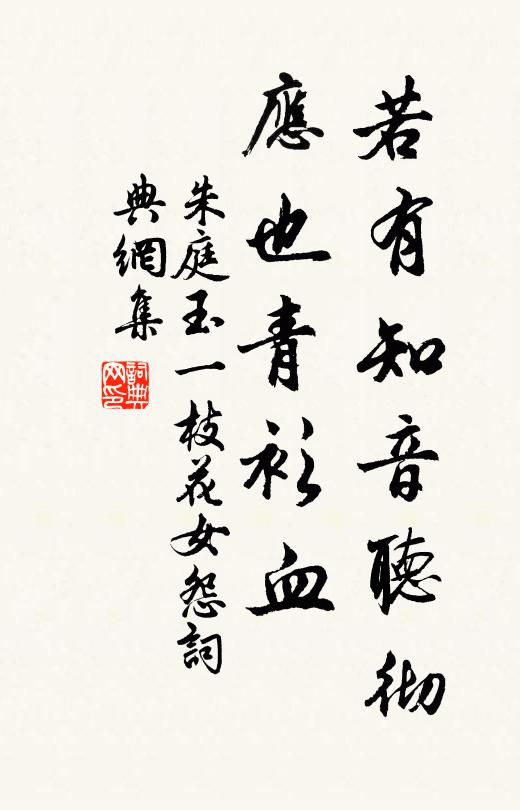 若有知音聽彻
應也青衫血
朱庭玉一枝花女怨詞
典網集
詞典网印